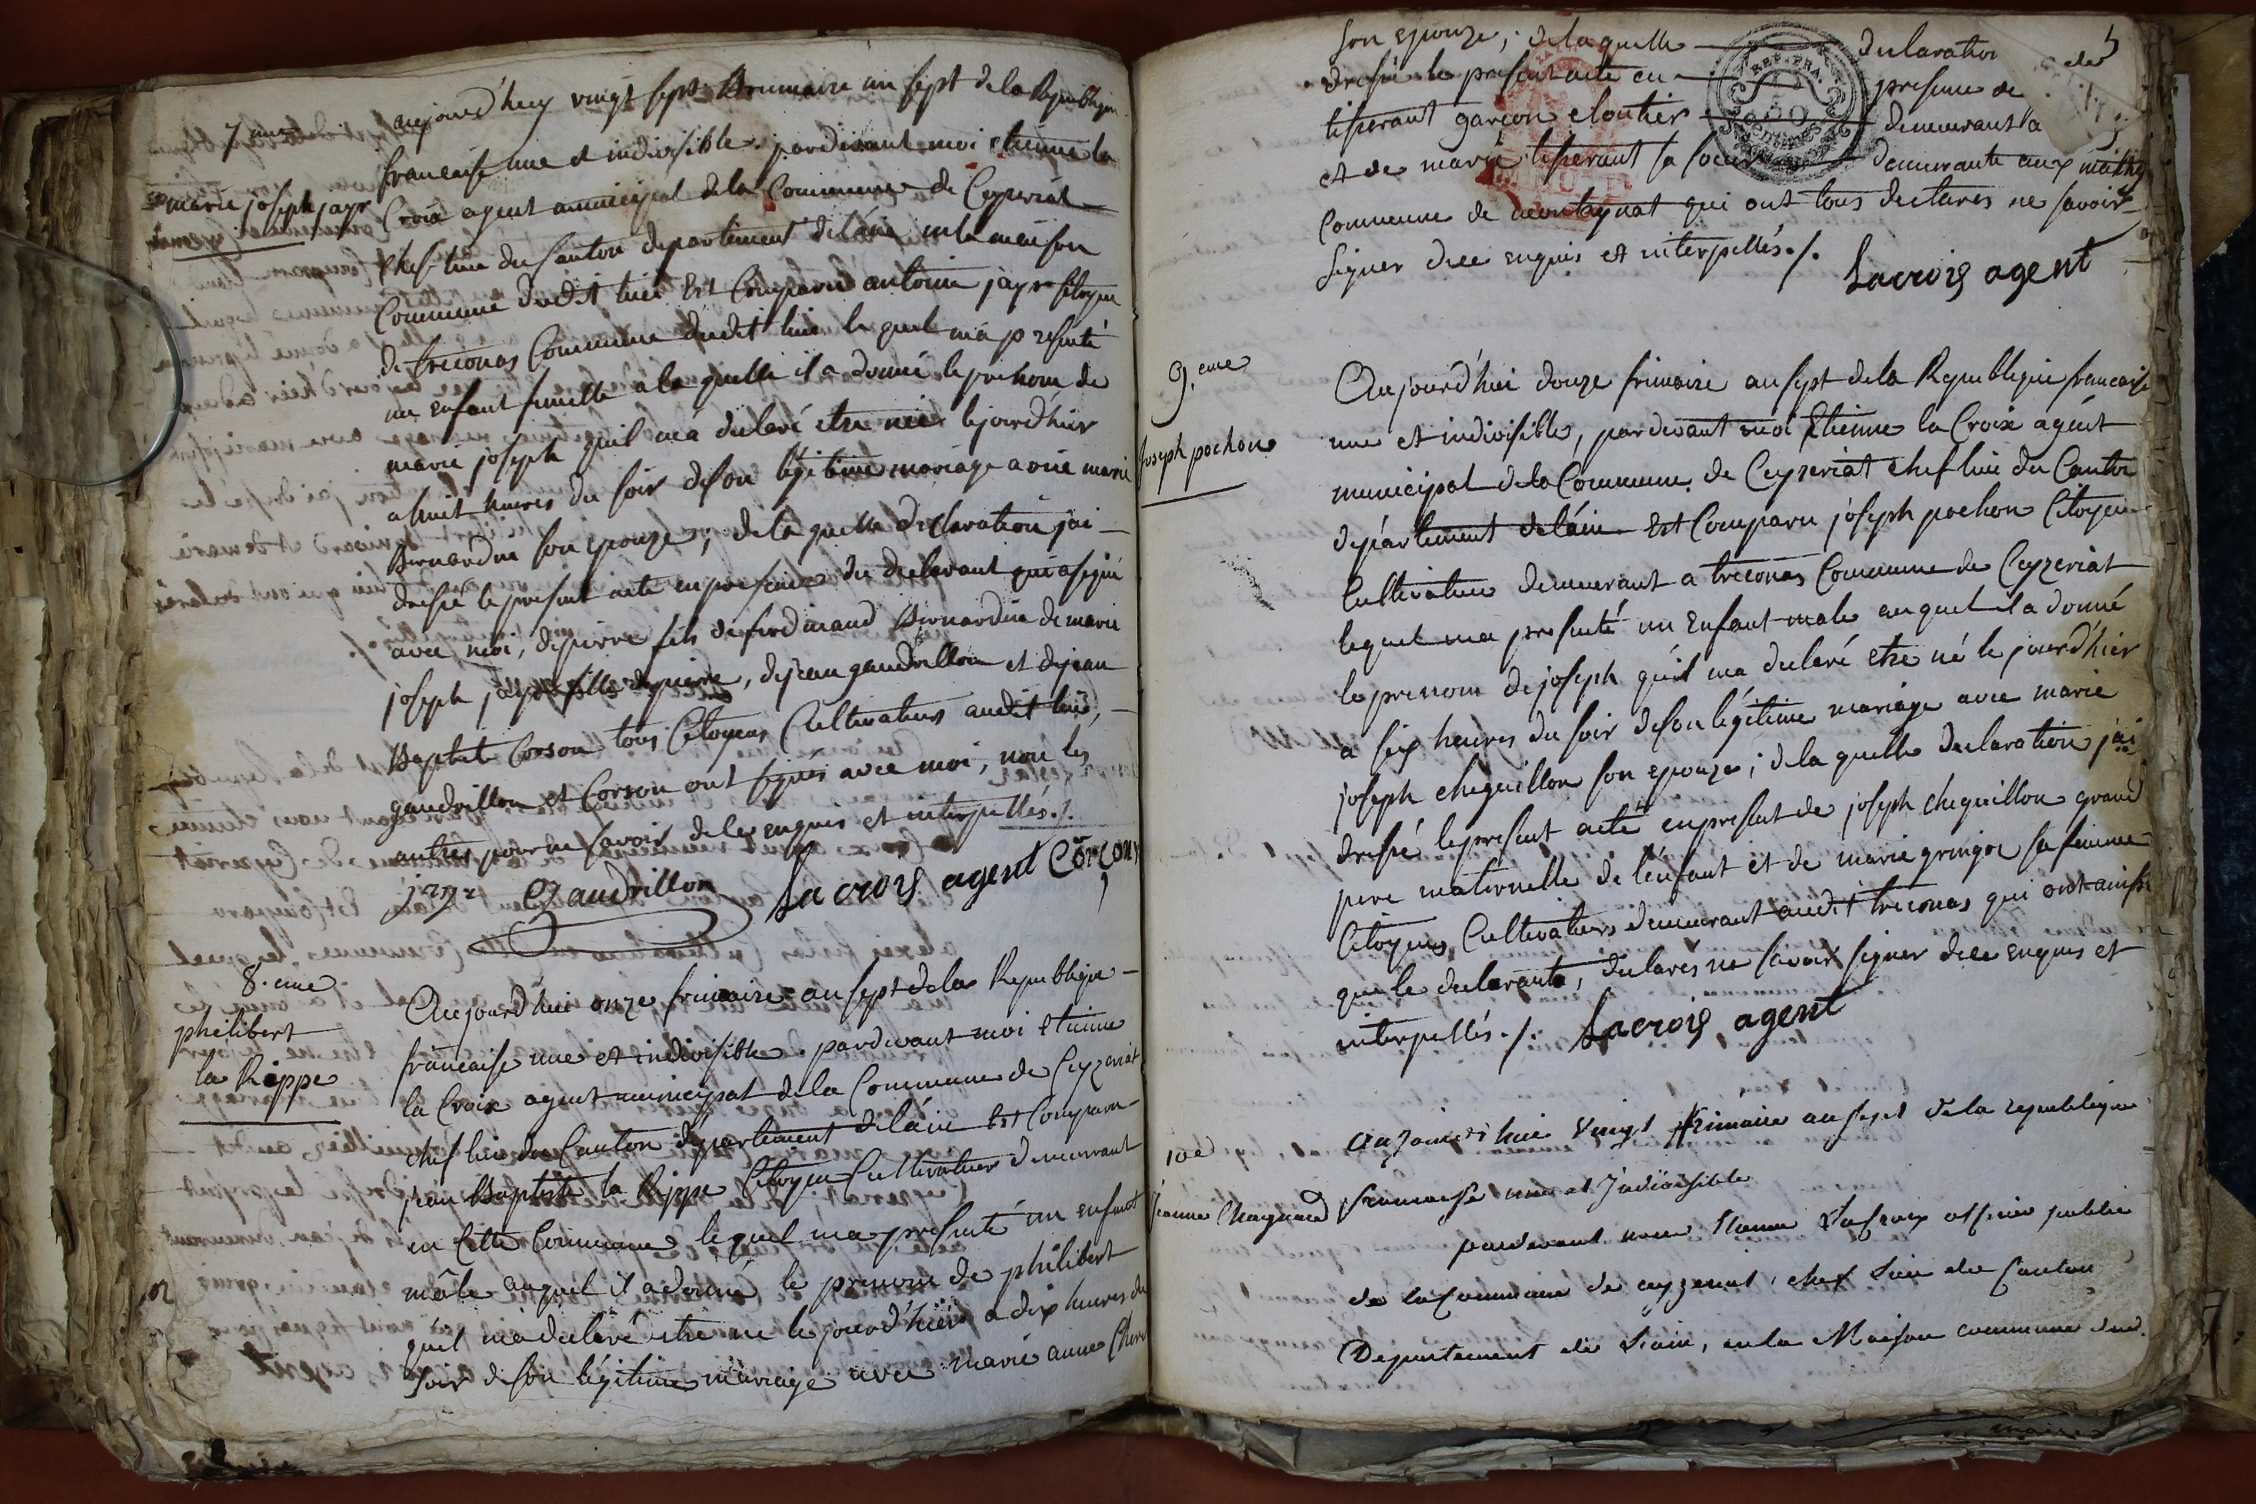 7 eme
marie joseph jayr
aujourd'huy vingt sept Brumaire an sept de la Republique
francaise une et indivisible. pardevant moi etienne la
Croix agent municipal de la Commune de Ceyzeriat
chef-lieu du Canton departement de láin en la maison
Commune dudit lieu Est Comparu antoine jayr Citoyen
de treconas Commune dudit lieu le quel ma presenté
un enfant femelle a la quelle il a donné le prenom de
marie joseph quil ma declaré etre née le jourd'hier
a huit heures du soir de son légitime mariage avec marie
Bernardin son epouze; de la quelle declaration jai
dressé le present acte en presence du declarant qui a signé
avec moi, de pierre fils de ferdinand Bernardin de marie
joseph jayr fille de pierre, de jean gaudrillon et de jean
Baptiste Corson tous Citoyens Cultivateurs audit lieu,
gaudrillon et Corson ont signés avec moi, non les
autres pour ne savoir de ce enquis et interpellés./.
jayr Gaudrillon Lacroix agent Corçon
8.eme
philibert
la Rippe
Aujourd'hui onze frimaire an sept de la Republique
française une et indivisible. pardevant moi etienne
la Croix agent municipal de la Commune de Ceyzeriat
chef lieu du Canton departement de láin Est Comparu
jean Baptiste la Rippe Citoyen Cultivateur demeurant
en Cette Commune lequel ma presenté un enfant
mâle auquel il a donné le prenom de philibert
quil ma declaré etre né le jourd'hier a dix heures du
soir de son légitime mariage avec marie anne
son epouze; de la quelle declaration
dressé le present acte en presence de
tisserant garçon cloutier demeurant a
et de marie tisserant sa soeur demeurante aux
Commune de montagnat qui ont tous declarés ne savoir
signer de ce enquis et interpellés./.
Lacroix agent
9.eme
joseph pochon
Aujourd'hui douze frimaire an sept de la Republique francaise
une et indivisible, pardevant moi Etienne la Croix agent
municipal de la Commune de Ceyzeriat chef lieu du Canton
département de láin Est Comparu joseph pochon Citoyen
Cultivateur demeurant a treconas Commune de Ceyzeriat
lequel ma presenté un Enfant male auquel il a donné
le prenom de joseph quil ma declaré etre né le jourd'hier
a six heures du soir de son légitime mariage avec marie
joseph chequillon son epouze; de la quelle declaration jai
dressé le present acte en present de joseph chequillon grand
pere maternelle de l'enfant et de marie gringoz sa femme
Citoyens Cultivateurs demeurant audit treconas qui ont ainsi
que le declarante, declarés ne savoir signer de ce enquis et
interpellés./. Lacroix agent
10e
jeanne
aujourd'hui vingt frimaire an sept de la republique
francaise une et Indivisible
pardevant nous Etienne Lacroix officier public
de la Commune de ceyzeriat, chef Lieu du Canton
Departement de Lain, en la Maison commune dud.